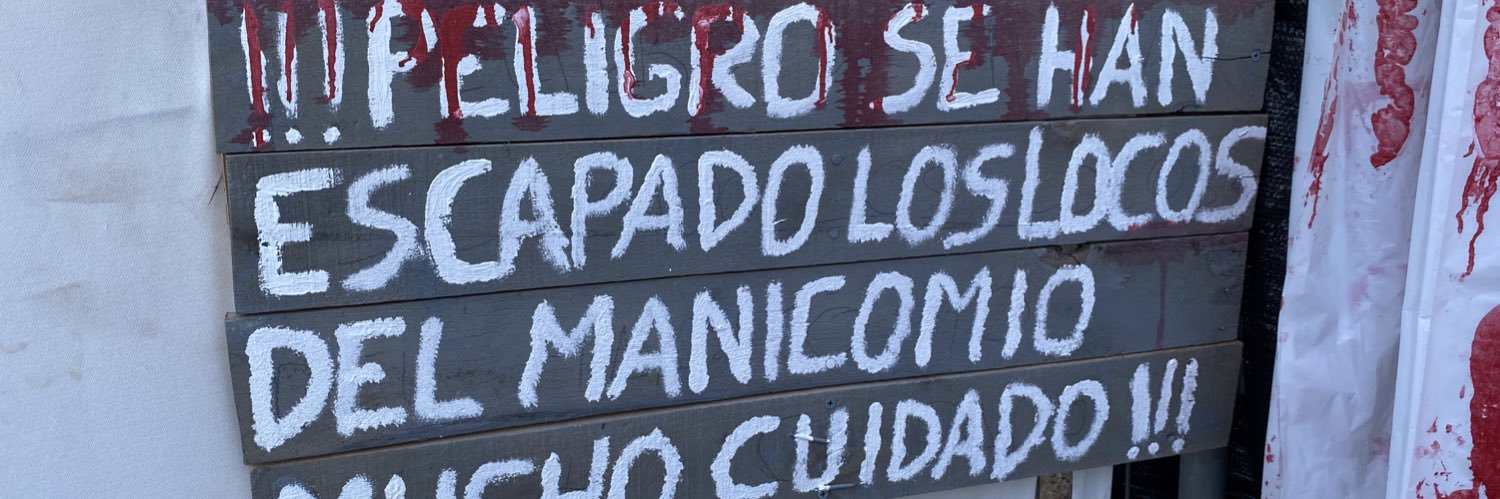 !!! PELIGRO SE HAN
ESCAPADO LOS LOCOS
DEL MANICOMIO
MUCHO CUIDADO !!!